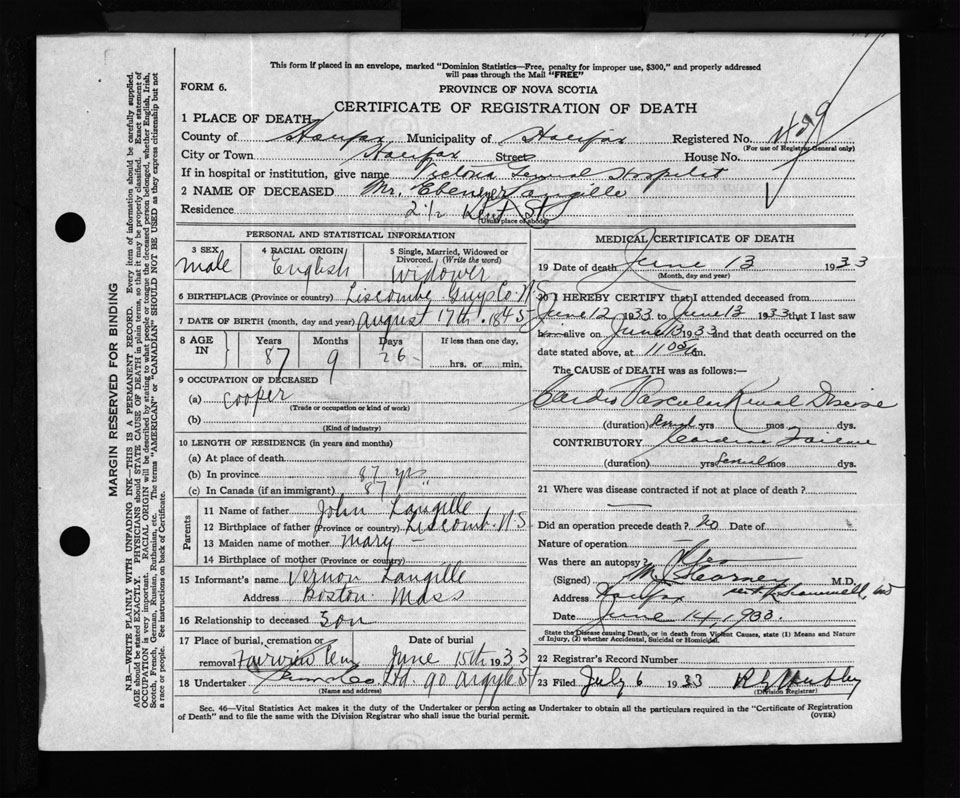 This form if placed in an envelope, marked "Dominion Statistics—Free, penalty for improper use, $300," and properly addressed
will pass through the Mail "FREE"
FORM 6.
PROVINCE OF NOVA SCOTIA
CERTIFICATE OF REGISTRATION OF DEATH
1 PLACE OF DEATH
County of Halifax Municipality of Halifax Registered No.
(For use of Registrar General only)
City or Town Halifax Street House No.
If in hospital or institution, give name Victoria General Hospital
2 NAME OF DECEASED Mr. Ebenezer Langille
Residence 2 1/2 Kent St
(Usual place of abode)
PERSONAL AND STATISTICAL INFORMATION
3 SEX
male
4 RACIAL ORIGIN
English
5 Single, Married, Widowed or Divorced. (Write the word)
Widower
6 BIRTHPLACE (Province or country) Liscombe Guys Co. N.S
7 DATE OF BIRTH (month, day and year) August 17th. 1845
8 AGE IN
Years 87
Months 9
Days 26
If less than one day,
hrs. or min.
9 OCCUPATION OF DECEASED
(a) Cooper
(Trade or occupation or kind of work)
(b)
(Kind of industry)
10 LENGTH OF RESIDENCE (in years and months)
(a) At place of death
(b) In province 87 yrs
(c) In Canada (if an immigrant) 87 "
Parents
11 Name of father John Langille
12 Birthplace of father (Province or country) Liscomb. N.S
13 Maiden name of mother Mary —
14 Birthplace of mother (Province or country)
15 Informant's name Vernon Langille
Address Boston. Mass
16 Relationship to deceased Son
17 Place of burial, cremation or removal Fairview Cem
Date of burial June 15th 1933
18 Undertaker Ltd 90 Argyle St
(Name and address)
MEDICAL CERTIFICATE OF DEATH
19 Date of death June 13 1933
(Month, day and year)
20 I HEREBY CERTIFY that I attended deceased from
June 12 1933 to June 13 1933 that I last saw
him alive on June 13 1933 and that death occurred on
date stated above, at m.
The CAUSE of DEATH was as follows:—
Cardio Vascular Renal Disease
(duration) yrs mos dys.
CONTRIBUTORY Cardiac Failure
(duration) yrs mos dys.
21 Where was disease contracted if not at place of death?
Did an operation precede death? No Date of
Nature of operation
Was there an autopsy?
(Signed) M.D.
Address Halifax
Date June 14, 1933.
State the Disease causing Death, or in death from Violent Causes, state (1) Means and Nature
of Injury, (2) whether Accidental, Suicidal or Homicidal.
22 Registrar's Record Number
23 Filed July 6 1933
(Division Registrar)
Sec. 46—Vital Statistics Act makes it the duty of the Undertaker or person acting as Undertaker to obtain all the particulars required in the "Certificate of Registration
of Death" and to file the same with the Division Registrar who shall issue the burial permit.
(OVER)
MARGIN RESERVED FOR BINDING
N.B.—WRITE PLAINLY WITH UNFADING INK—THIS IS A PERMANENT RECORD. Every item of information should be carefully supplied.
AGE should be stated EXACTLY. PHYSICIANS should STATE CAUSE OF DEATH in plain terms, so that it may be properly classified. Exact statement of
OCCUPATION is very important. RACIAL ORIGIN will be described by stating to what people or tongue the deceased person belonged, whether English, Irish,
Scotch, French, German, Russian, Ruthenian, etc. The terms "AMERICAN" or "CANADIAN" SHOULD NOT BE USED as they express citizenship but not
a race or people. See instructions on back of Certificate.